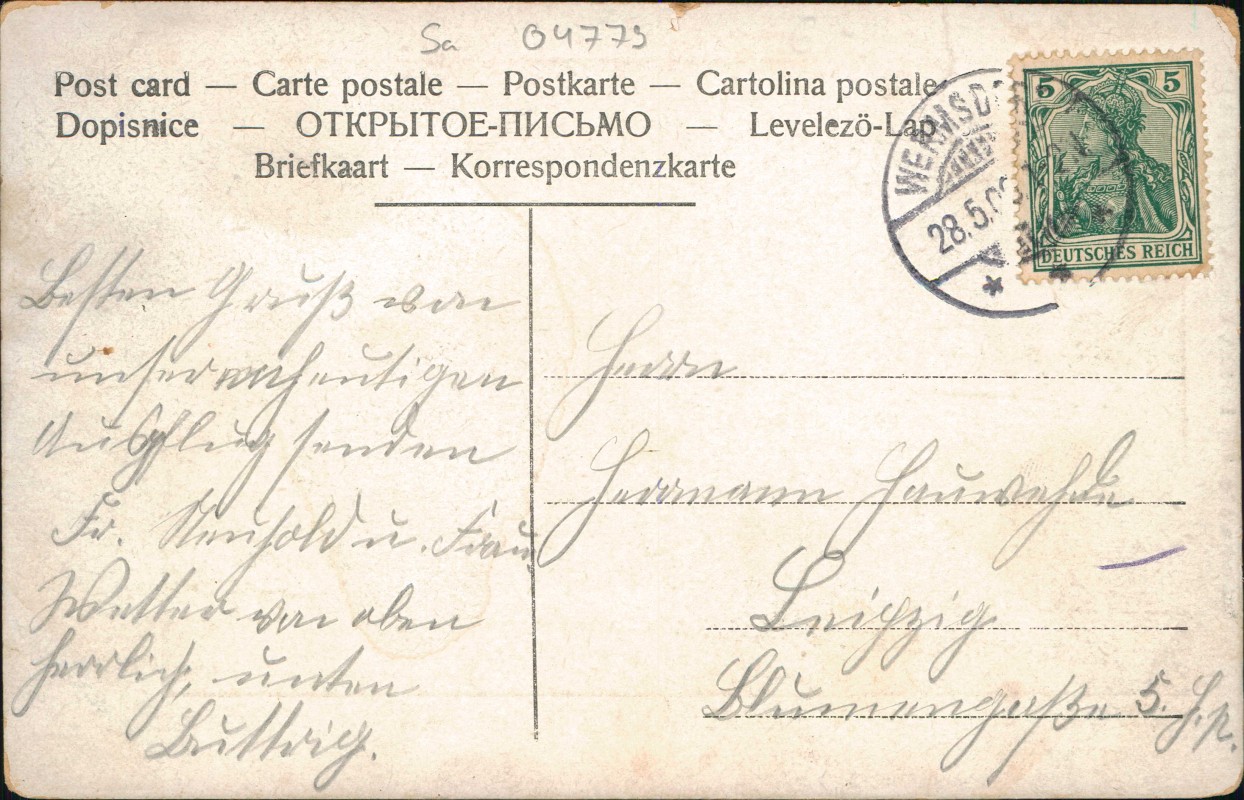 Sa 04779
Post card — Carte postale — Postkarte — Cartolina postale
Dopisnice — ОТКРЫТОЕ-ПИСЬМО — Levelezö-Lap
Briefkaart — Korrespondenzkarte
5 5
DEUTSCHES REICH
WERMSD
28.5.0
Besten Gruß von
unserem heutigen
Ausflug senden
Fr. u. Frau
Wetter von oben
herrlich, unten
Herrn
Herrmann
Leipzig
Blumengaße 5. H.p.